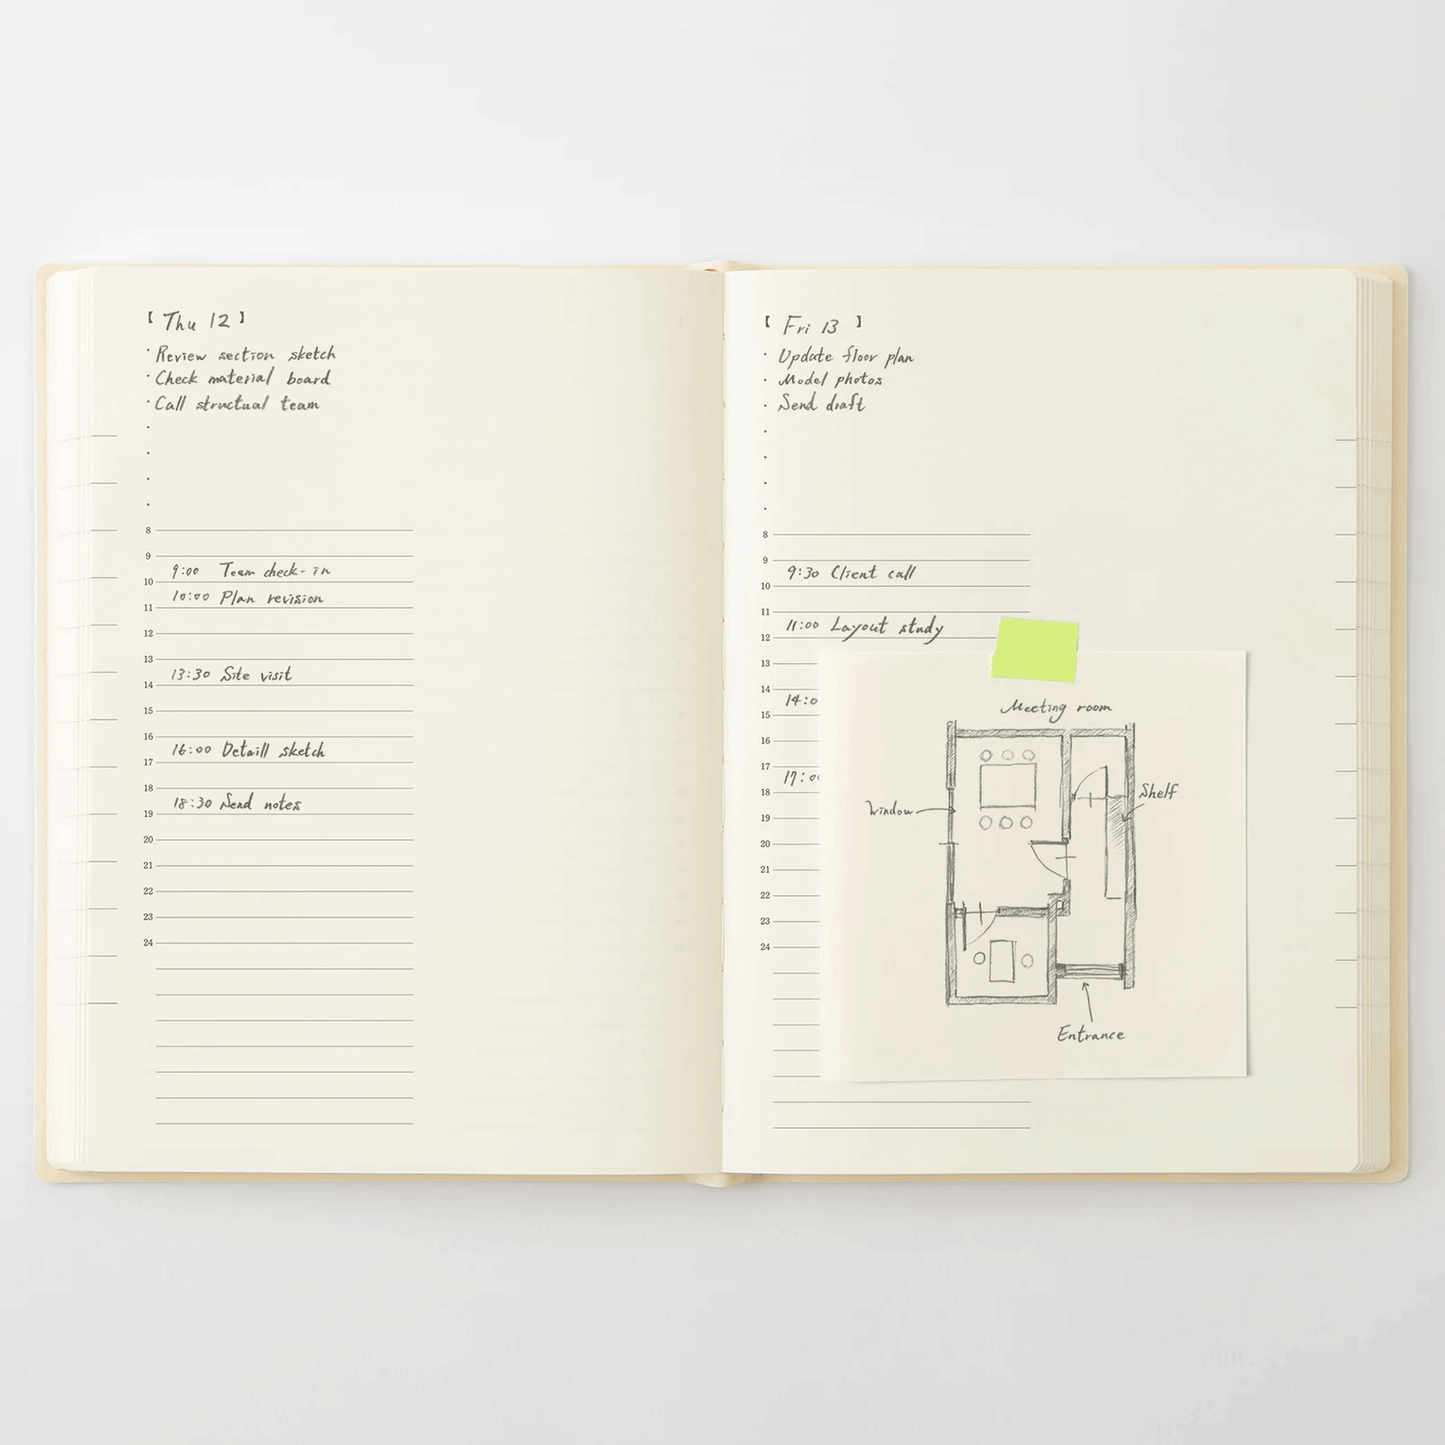 【 Thu 12 】
· Review section sketch
· Check material board
· Call structual team
8
9
9:00 Team check-in
10
10:00 Plan revision
11
12
13
13:30 Site visit
14
15
16
16:00 Detaill sketch
17
18
18:30 Send notes
19
20
21
22
23
24
【 Fri 13 】
· Update floor plan
· Model photos
· Send draft
8
9
9:30 Client call
10
11
11:00 Layout study
12
13
14
14:0
15
16
17
17:00
18
19
20
21
22
23
24
Meeting room
Window
Shelf
Entrance